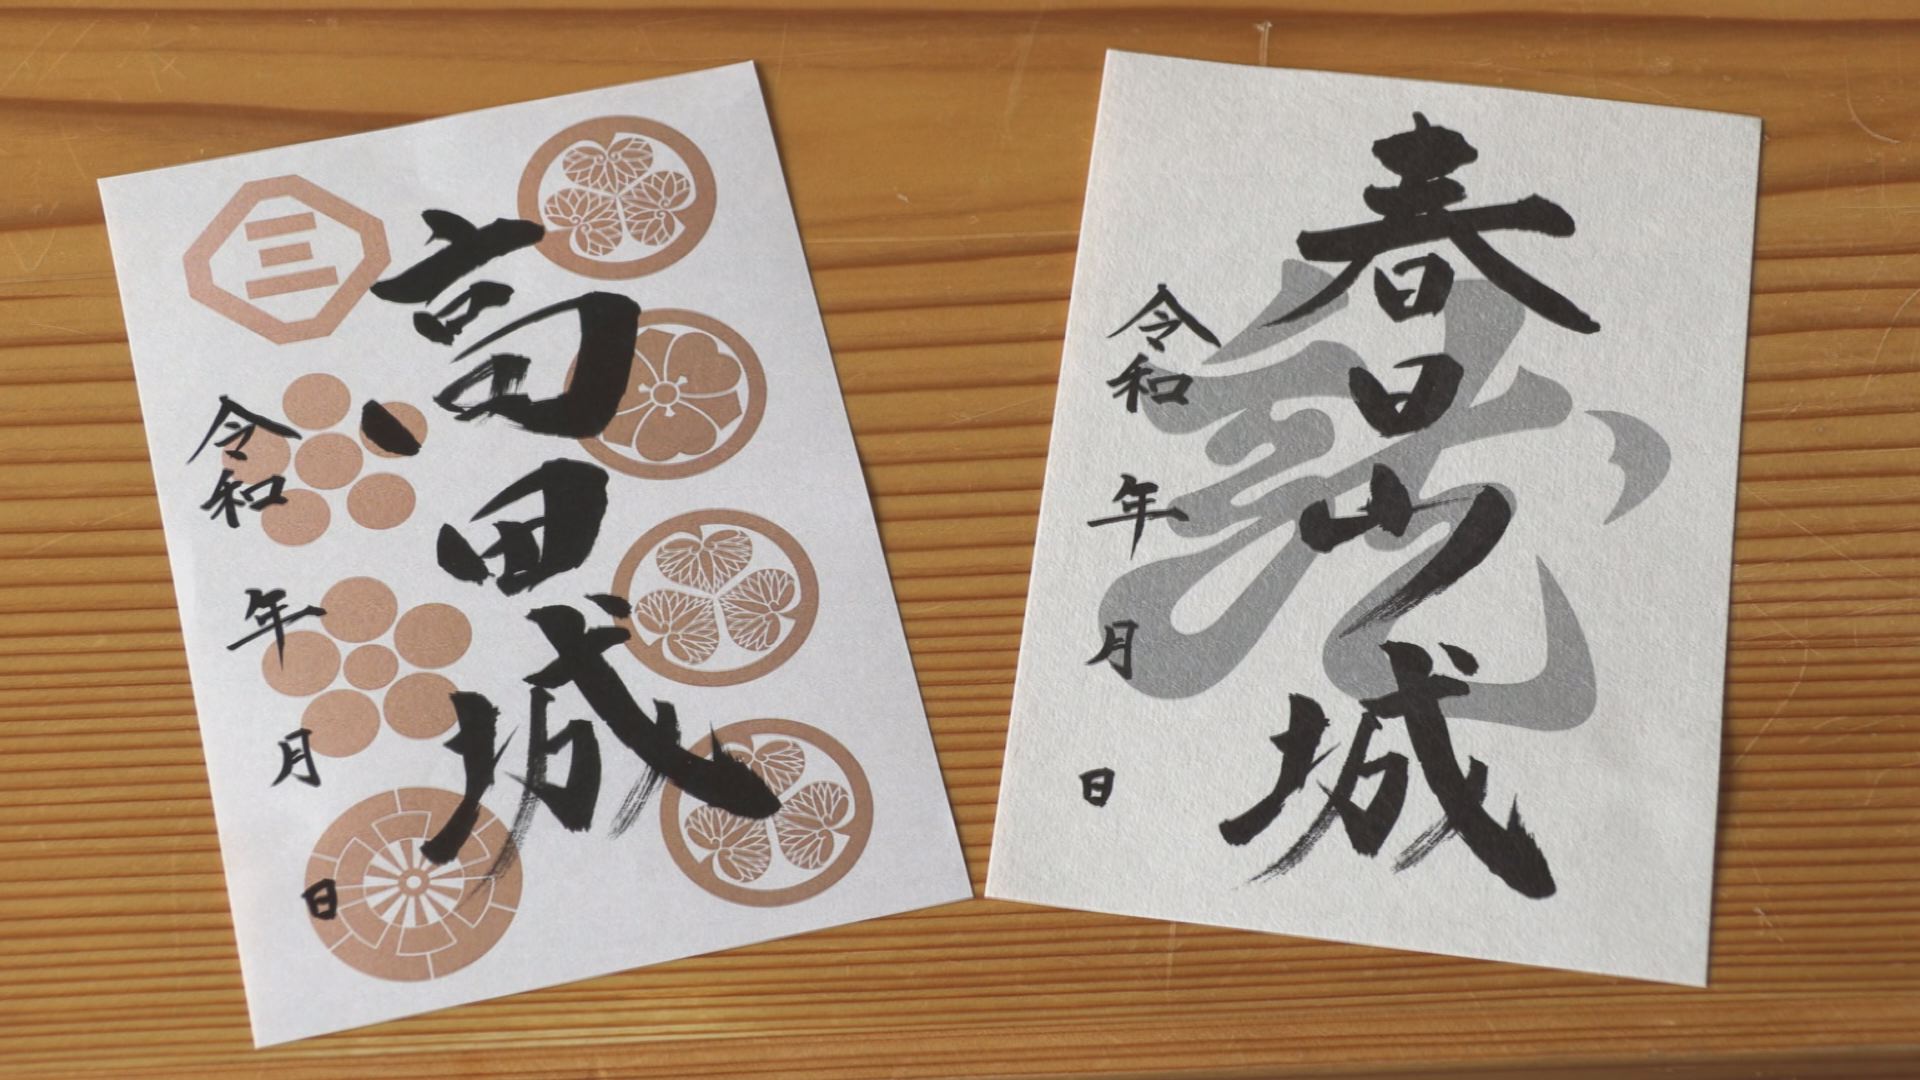 高田城
令和 年 月 日
春日山城
令和 年 月 日
龍